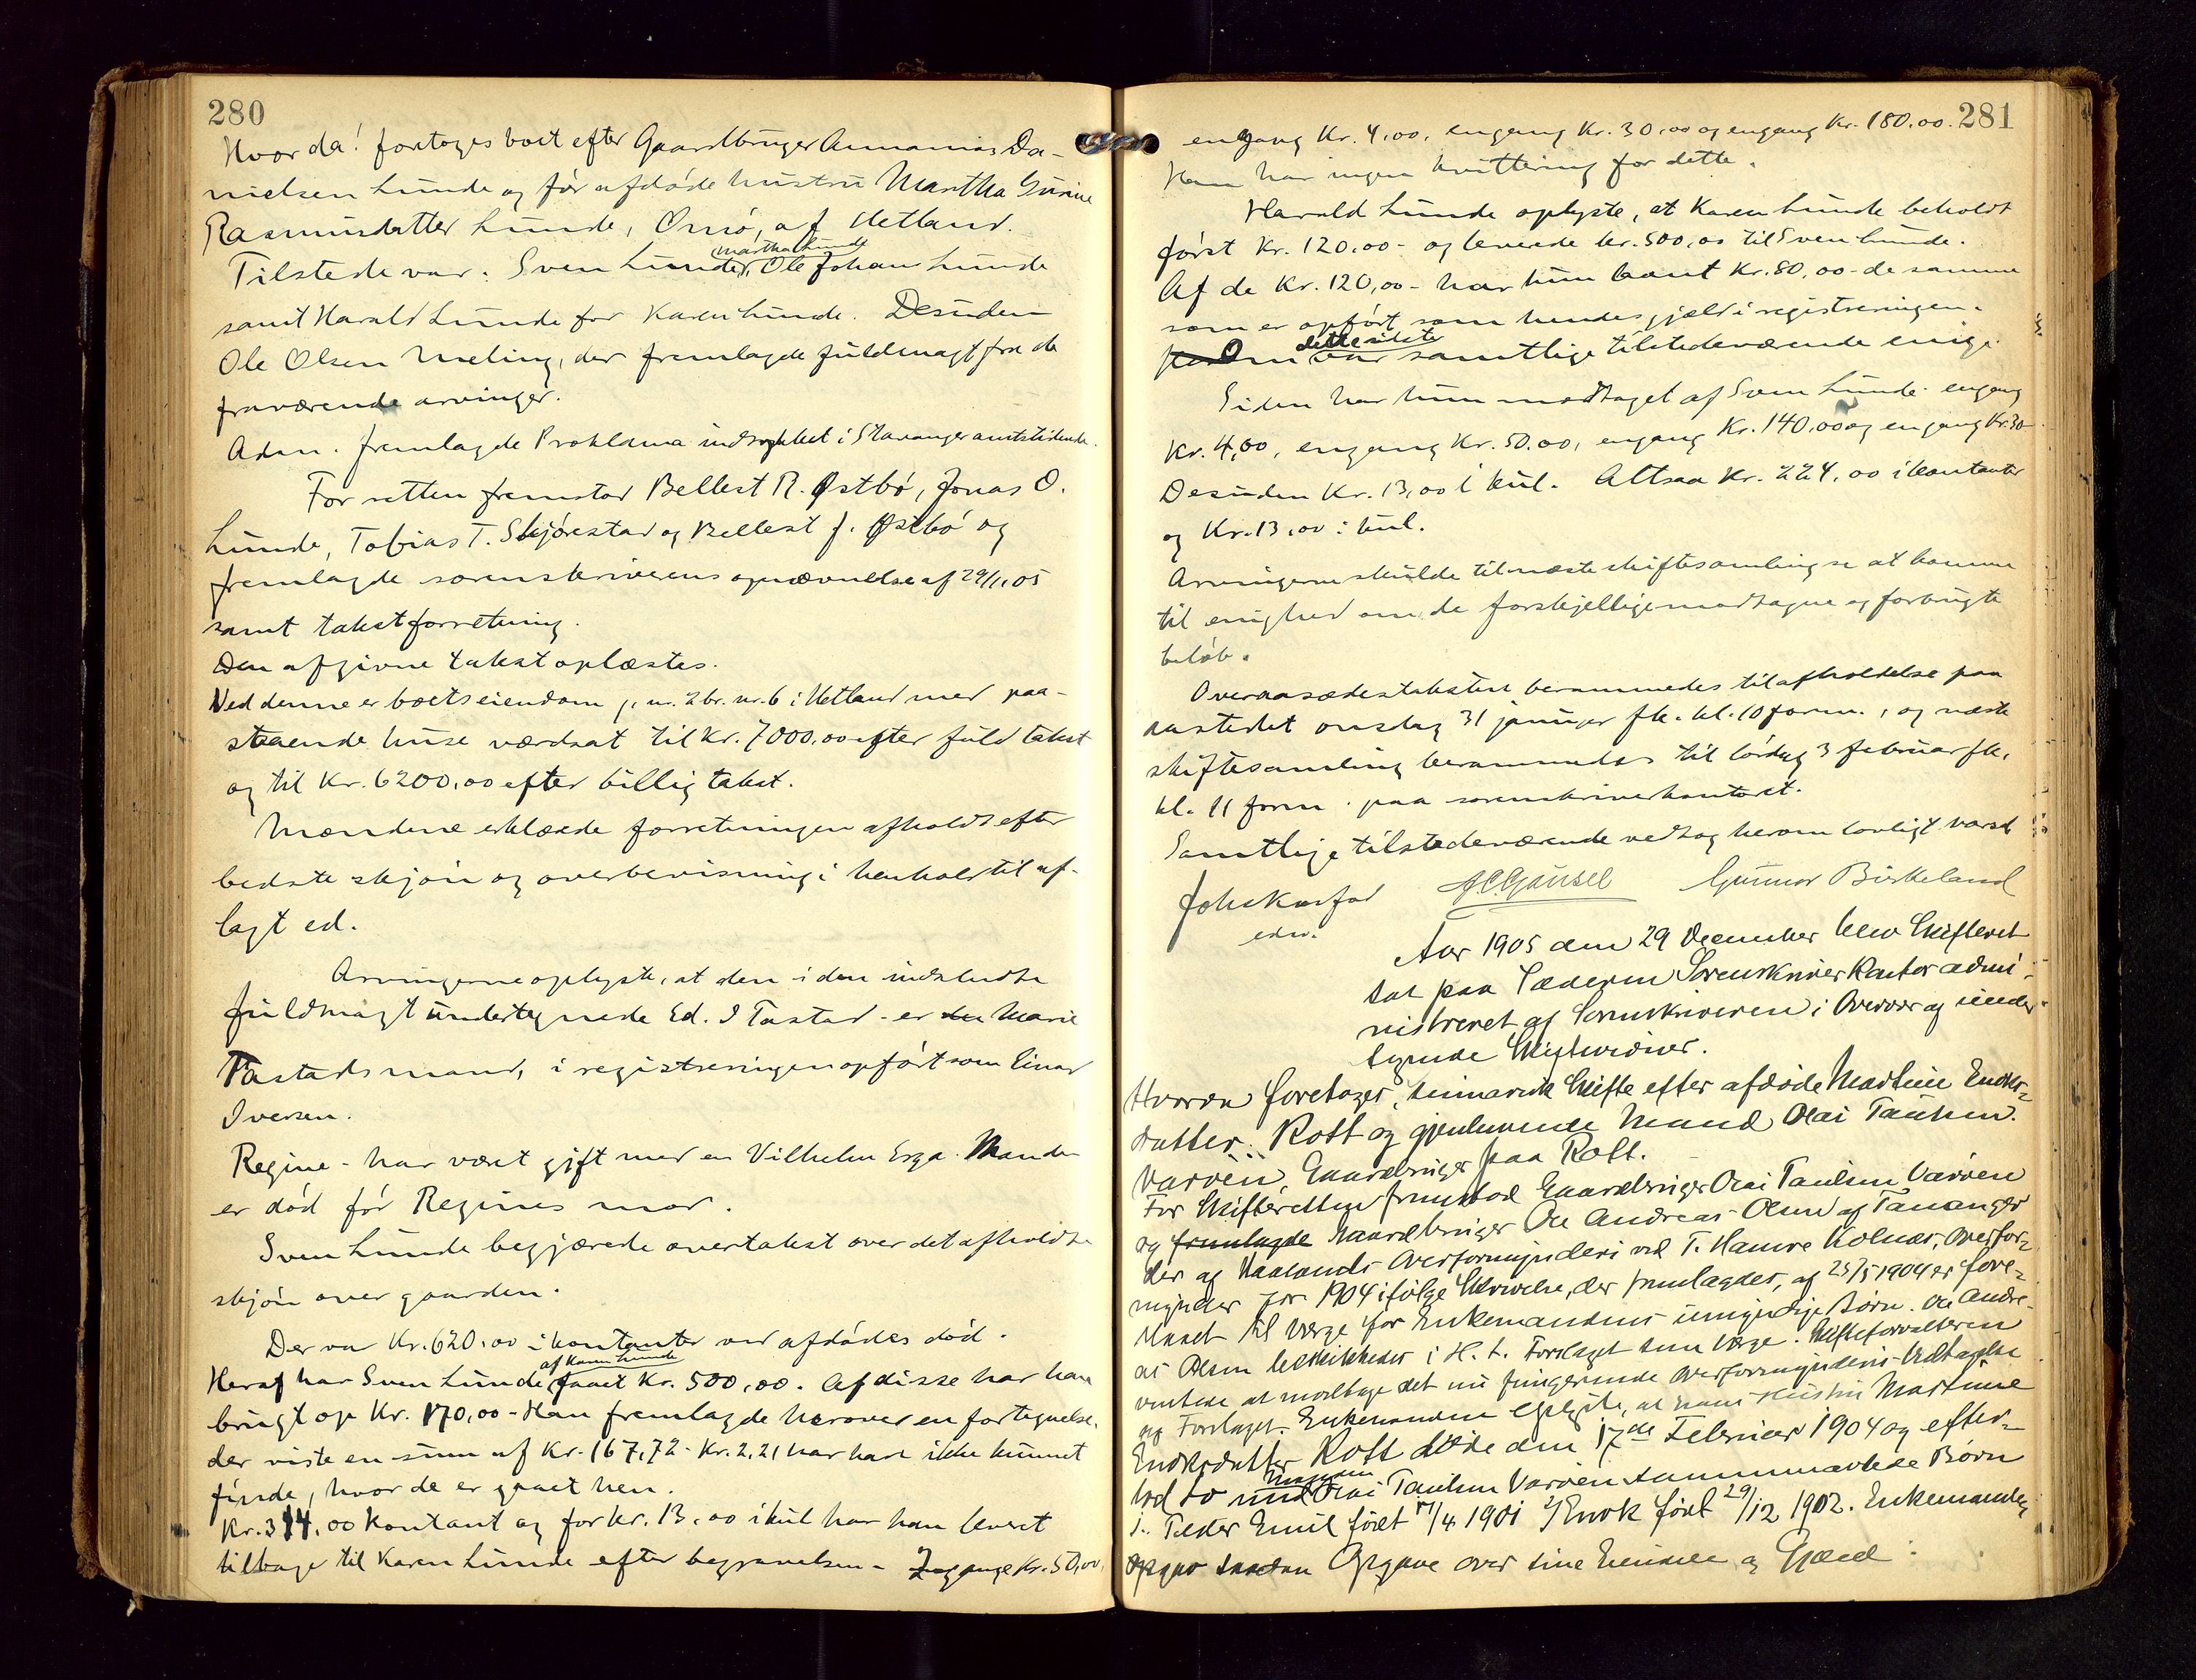 280
Hvorda! foretoges boet efter Gaardbruger Annanias Da-
nielsen Lunde og før afdøde hustru Martha Gurine
Rasmusdatter Lunde, Omø, af Hetland.
Martha Lunde
Tilstede var: Sven Lunde, Ole Johan Lunde
samt Harald Lunde for Karen Lunde. Desuden
Ole Olsen Meling, der fremlagde fuldmagt fra de
fraværende arvinger.
Adm. fremlagde Proklama indrykket i Stavanger amtstidende.
For retten fremstod Bellest R. Østbø, Jonas O.
Lunde, Tobias T. Skjørestad og Bellest J. Østbø og
fremlagde sorenskriverens opnævnelse af 29/11 05
samt takstforretning.
Den afgivne takst oplæstes.
Ved denne er boets eiendom g.nr. 2 br.nr. 6 i Hetland med paa-
staaende huse værdsat til Kr. 7000,00 efter fuld takst
og til Kr. 6200,00 efter billig takst.
Mændene erklærede forretningen afholdt efter
bedste skjøn og overbevisning i henhold til af-
lagt ed.
Arvingerne oplyste, at den i den indsendte
fuldmagt undertegnede Ed. I Tastad - er Marie
Tastads mand, i registreringen opført som Einar
Iversen.
Regine - har været gift med en Vilhelm Erga. Manden
er død før Regines mor.
Sven Lunde begjærede overtakst over det afholdte
skjøn over gaarden.
Der var Kr. 620,00 i kontanter ved afdødes død.
af Karen Lunde
Heraf har Sven Lunde faaet Kr. 500,00. Af disse har han
brugt op Kr. 170,00 - Han fremlagde herover en fortegnelse,
der viste en sum af Kr. 167,72 - Kr. 2,21 har han ikke kunnet
finde, hvor de er gaaet hen.
Kr. 314,00 kontant og for kr. 13,00 i kul har han leveret
tilbage til Karen Lunde efter begravelsen - gange Kr. 50,00,
281
engang Kr. 4,00, engang Kr. 30,00 og engang Kr. 180,00.
Han har ingen kvittering for dette.
Harald Lunde oplyste, at Karen Lunde beholdt
først Kr. 120,00 - og leverede kr. 500,00 til Sven Lunde.
Af de Kr. 120,00 - har hun laant Kr. 80,00 - de samme
som er opført som hendes gjæld i registreringen.
dette sidste
Om var samtlige tilstedeværende enige.
Siden har hun modtaget af Sven Lunde engang
Kr. 4,00, engang Kr. 50,00, engang Kr. 140,00 og engang Kr. 30-
Desuden Kr. 13,00 i kul. Altsaa Kr. 224,00 i kontanter
og Kr. 13,00 i kul.
Arvingerne skulde til næste skiftesamling se at komme
til enighed om de forskjellige modtagne og forbrugte
beløb.
Overaasædestaksten berammedes til afholdelse paa
aastedet onsdag 31 januar fk. kl. 10 form., og næste
skiftesamling berammedes til lørdag 3 februar fk.
kl. 11 form. paa sorenskriverkontoret.
Samtlige tilstedeværende vedtog herom lovligt varsel
A.C. Gausel Gunnar Birkeland
edv.
Aar 1905 den 29 December blev Skifteret
sat paa Jæderen Sorenskriver Kontor admi-
nistreret af Sorenskriveren i Overvær af under-
tegnede Skiftevidner.
Hvorda foretoges, summarisk Skifte efter afdøde Martine Enoks-
datter Rott og gjenlevende Mand Olai Paulsen
Varøen, Gaardbruger paa Rott.
For Skifteretten fremstod Gaardbruger Olai Paulsen Varøen
og fremlagde Gaardbruger Ole Andreas Olsen af Tananger
der af Haalands Overformynderi ved T. Hamre Kolnæs, Overfor-
mynder for 1904 ifølge Skrivelse, der fremlagdes, af 25/5 1904 er fore-
slaaet til Værge for Enkemandens umyndige Børn. Ole Andre-
as Olsen beskikkedes i H. t. Forslaget som Værge. Skifteforvalteren
ventede at modtage det nu fungerende Overformynderis Vedtagelse
af Forslaget. Enkemanden oplyste, at hans Hustru Martine
Enoksdatter Rott døde den 17de Februar 1904 og efter-
lod to med Olai Paulsen Varøen sammenavlede Børn
1. Peder Emil født 17/4 1901 2/ Enok født 29/12 1902. Enkemanden
opgav saadan Opgave over sine Eiendele og Gjæld: